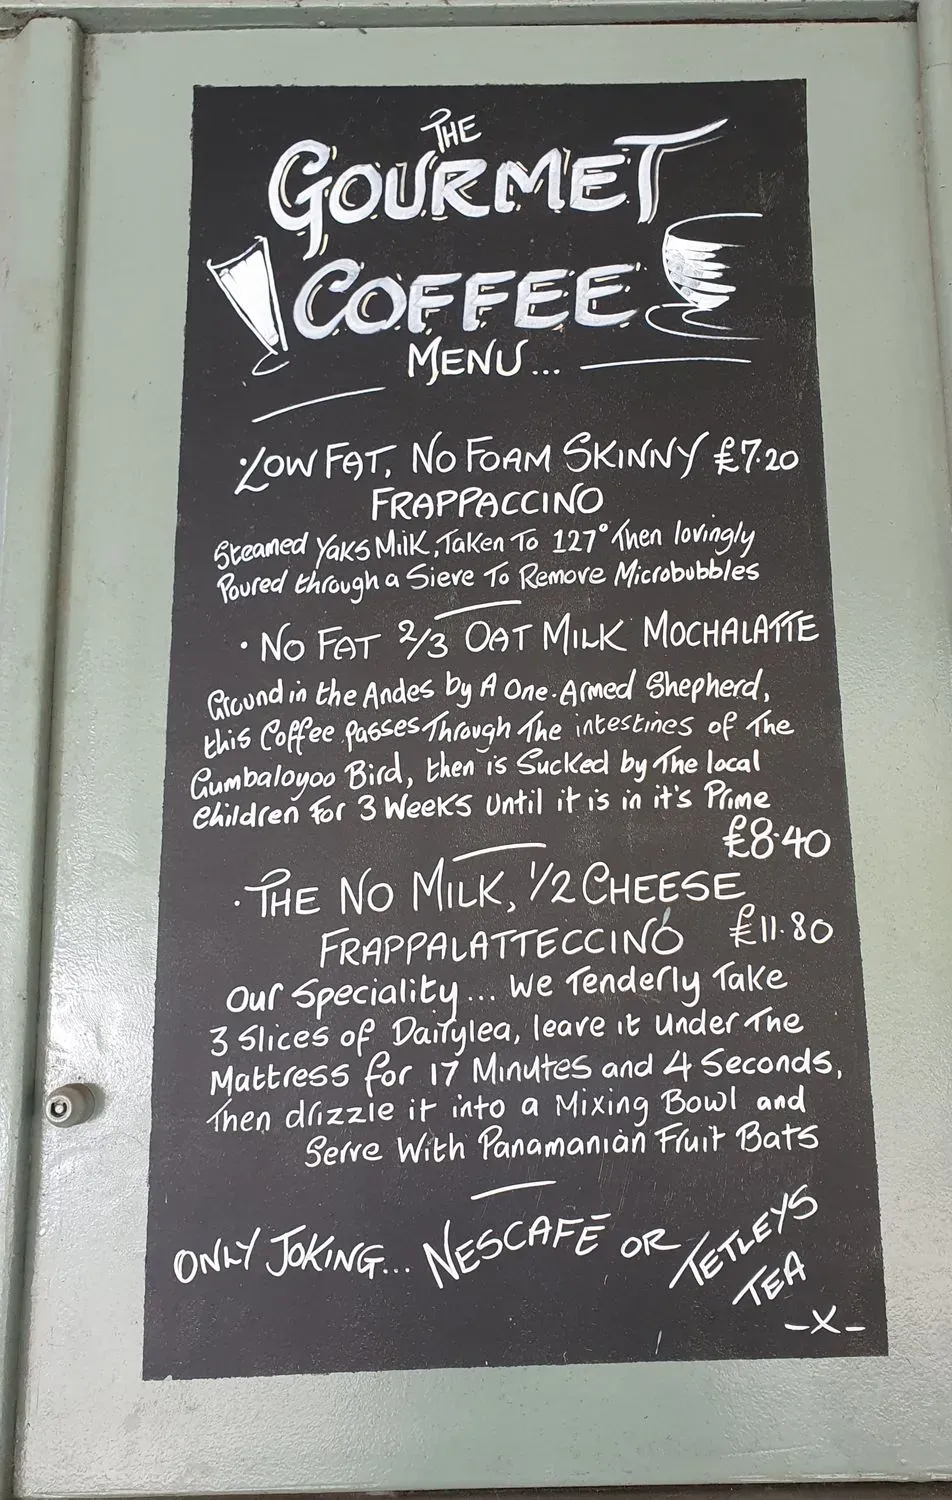 THE
GOURMET
COFFEE
MENU...
· LOW FAT, NO FOAM SKINNY £7.20
FRAPPACCINO
Steamed Yaks Milk, Taken To 127° Then lovingly
Poured through a Sieve To Remove Microbubbles
· NO FAT 2/3 OAT MILK MOCHALATTE
Ground in the Andes by A One-Armed Shepherd,
this Coffee passes Through The intestines of The
Gumbaloyoo Bird, then is Sucked by The local
Children For 3 Weeks Until it is in it's Prime
£8.40
· THE NO MILK, 1/2 CHEESE
FRAPPALATTECCINO £11.80
Our Speciality... We Tenderly Take
3 Slices of Dairylea, leave it Under The
Mattress for 17 Minutes and 4 Seconds,
Then drizzle it into a Mixing Bowl and
Serve With Panamanian Fruit Bats
ONLY JOKING... NESCAFÉ OR TETLEYS
TEA
-X-